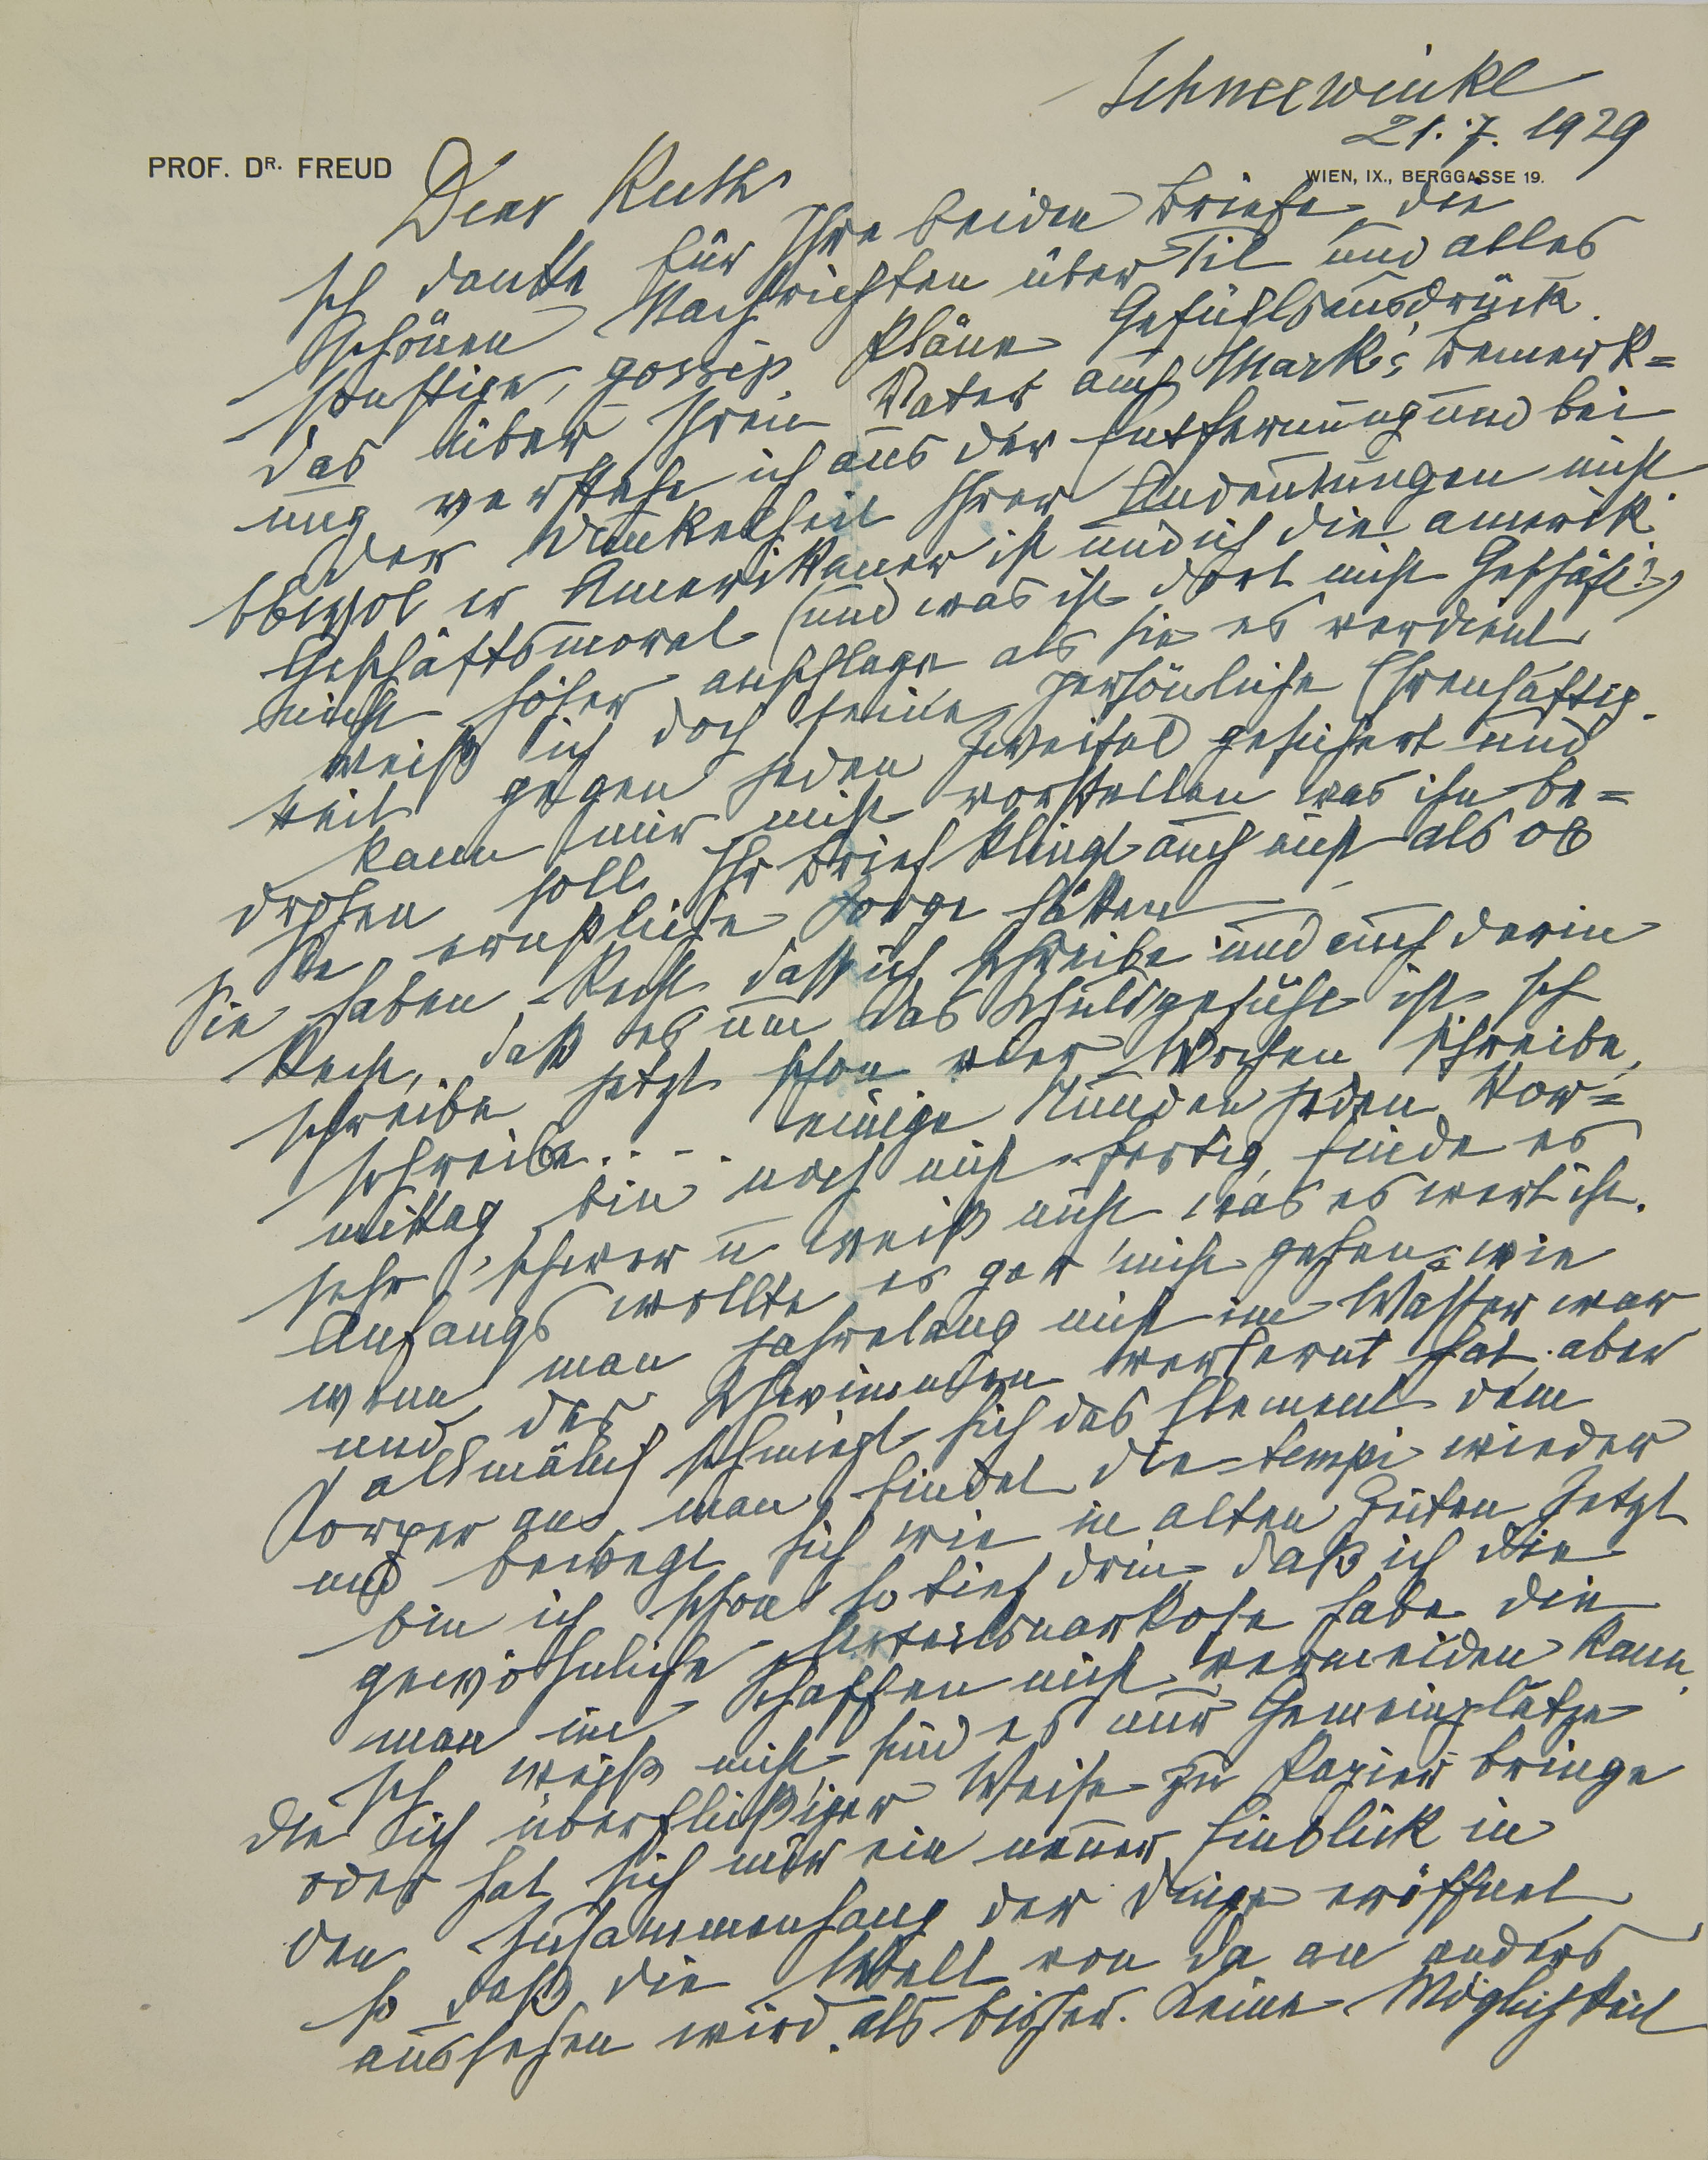 Schneewinkl
21.7.1929
PROF. DR. FREUD
WIEN, IX., BERGGASSE 19.
Dear Ruth
Ich danke für Ihre beiden Briefe, die
schönen Nachrichten über Til und alles
sonstige, gossip Pläne Gefühlsausdrück.
Das über Ihren Vater auch Mark's Bemerk=
ung verstehe ich aus der Entfernung und bei
der Dunkelheit Ihrer Andeutungen nicht.
Obwol er Amerikaner ist und ich die amerik.
Geschäftsmoral (und was ist dort nicht Geschäft?)
nicht höher anschlage als sie es verdient
weiß ich doch seine persönliche Ehrenhaftig-
keit gegen jeden Zweifel gesichert und
kann mir nicht vorstellen was ihn be=
drohen soll. Ihr Brief klingt auch nicht als ob
Sie ernstliche Sorge hätten
Sie haben Recht daß ich schreibe und auch darin
Recht, daß es um das Schuldgefühl ist. Ich
schreibe jetzt schon vier Wochen schreibe,
schreibe.... einige Stunden jeden Vor=
mittag bin noch nicht fertig, finde es
sehr schwer u weiß nicht was es wert ist.
Anfangs wollte es gar nicht gehen; wie
wenn man jahrelang nicht im Wasser war
und das Schwimmen verlernt hat. aber
allmälich schmiegt sich das Element dem
Körper an man findet die tempi wieder
und bewegt sich wie in alten Zeiten Jetzt
bin ich schon so tief drin daß ich die
gewöhnliche habe die
man im Schaffen nicht vermeiden kann.
Ich weiß nicht sind es nur Gemeinplätze
die ich überflüßiger Weise zu Papier bringe
oder hat sich mir ein neuer Einblick in
den Zusammenhang der Dinge eröffnet
so daß die Welt von da an anders
aussehen wird als bisher. Keine Möglichkeit